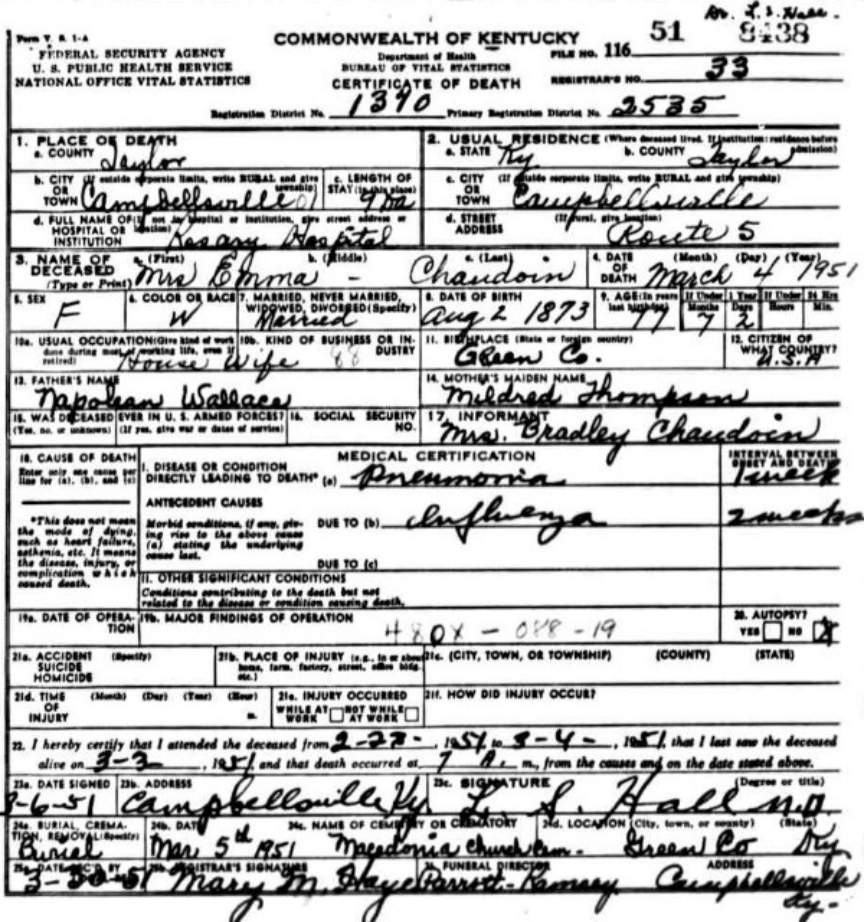 Dr. L. S. Hall.
Form V. S. 1-A
FEDERAL SECURITY AGENCY
U. S. PUBLIC HEALTH SERVICE
NATIONAL OFFICE VITAL STATISTICS
COMMONWEALTH OF KENTUCKY
Department of Health
BUREAU OF VITAL STATISTICS
CERTIFICATE OF DEATH
FILE NO. 116 51 8438
REGISTRAR'S NO. 33
Registration District No. 1370 Primary Registration District No. 2535
1. PLACE OF DEATH
a. COUNTY Taylor
2. USUAL RESIDENCE (Where deceased lived. If institution: residence before admission)
a. STATE Ky b. COUNTY Taylor
b. CITY (If outside corporate limits, write RURAL and give township)
OR TOWN Campbellsville 01
c. LENGTH OF STAY (in this place) 9 Da
c. CITY (If outside corporate limits, write RURAL and give township)
OR TOWN Campbellsville
d. FULL NAME OF (If not in hospital or institution, give street address or location)
HOSPITAL OR INSTITUTION Rosary Hospital
d. STREET ADDRESS (If rural, give location) Route 5
3. NAME OF DECEASED (Type or Print)
a. (First) b. (Middle) c. (Last)
Mrs Emma - Chaudoin
4. DATE OF DEATH (Month) (Day) (Year)
March 4 1951
5. SEX F
6. COLOR OR RACE W
7. MARRIED, NEVER MARRIED, WIDOWED, DIVORCED (Specify) Married
8. DATE OF BIRTH Aug 2 1873
9. AGE (In years last birthday) 77 If Under 1 Year Months 7 Days 2 If Under 24 Hrs Hours Min.
10a. USUAL OCCUPATION (Give kind of work done during most of working life, even if retired) House Wife
10b. KIND OF BUSINESS OR INDUSTRY 88
11. BIRTHPLACE (State or foreign country) Green Co.
12. CITIZEN OF WHAT COUNTRY? U.S.A
13. FATHER'S NAME
Napolean Wallace
14. MOTHER'S MAIDEN NAME
Mildred Thompson
15. WAS DECEASED EVER IN U. S. ARMED FORCES?
(Yes, no. or unknown) (If yes, give war or dates of service)
16. SOCIAL SECURITY NO.
17. INFORMANT
Mrs. Bradley Chaudoin
18. CAUSE OF DEATH
Enter only one cause per line for (a), (b), and (c)
MEDICAL CERTIFICATION
INTERVAL BETWEEN ONSET AND DEATH
I. DISEASE OR CONDITION
DIRECTLY LEADING TO DEATH* (a) Pneumonia 1 week
*This does not mean the mode of dying, such as heart failure, asthenia, etc. It means the disease, injury, or complication which caused death.
ANTECEDENT CAUSES
Morbid conditions, if any, giving rise to the above cause (a) stating the underlying cause last.
DUE TO (b) Influenza 2 weeks
DUE TO (c)
II. OTHER SIGNIFICANT CONDITIONS
Conditions contributing to the death but not related to the disease or condition causing death.
19a. DATE OF OPERATION
19b. MAJOR FINDINGS OF OPERATION
480X - 088 - 19
20. AUTOPSY?
YES NO X
21a. ACCIDENT SUICIDE HOMICIDE (Specify)
21b. PLACE OF INJURY (e.g., in or about home, farm, factory, street, office bldg. etc.)
21c. (CITY, TOWN, OR TOWNSHIP) (COUNTY) (STATE)
21d. TIME OF INJURY (Month) (Day) (Year) (Hour) m.
21e. INJURY OCCURRED
WHILE AT WORK NOT WHILE AT WORK
21f. HOW DID INJURY OCCUR?
22. I hereby certify that I attended the deceased from , 1951, to 3-4-, 1951, that I last saw the deceased
alive on 3-3, 1951 and that death occurred at 7 A. m., from the causes and on the date stated above.
23a. DATE SIGNED 3-6-51
23b. ADDRESS Campbellsville Ky.
23c. SIGNATURE (Degree or title)
L. S. Hall M.D
24a. BURIAL, CREMATION, REMOVAL (Specify) Burial
24b. DATE Mar 5th 1951
24c. NAME OF CEMETERY OR CREMATORY Macedonia Church Cem.
24d. LOCATION (City, town, or county) (State) Green Co Ky
25a. DATE REC'D BY
25b. REGISTRAR'S SIGNATURE Mary M. Haye
26. FUNERAL DIRECTOR ADDRESS
Parrott - Ramsey Campbellsville Ky.